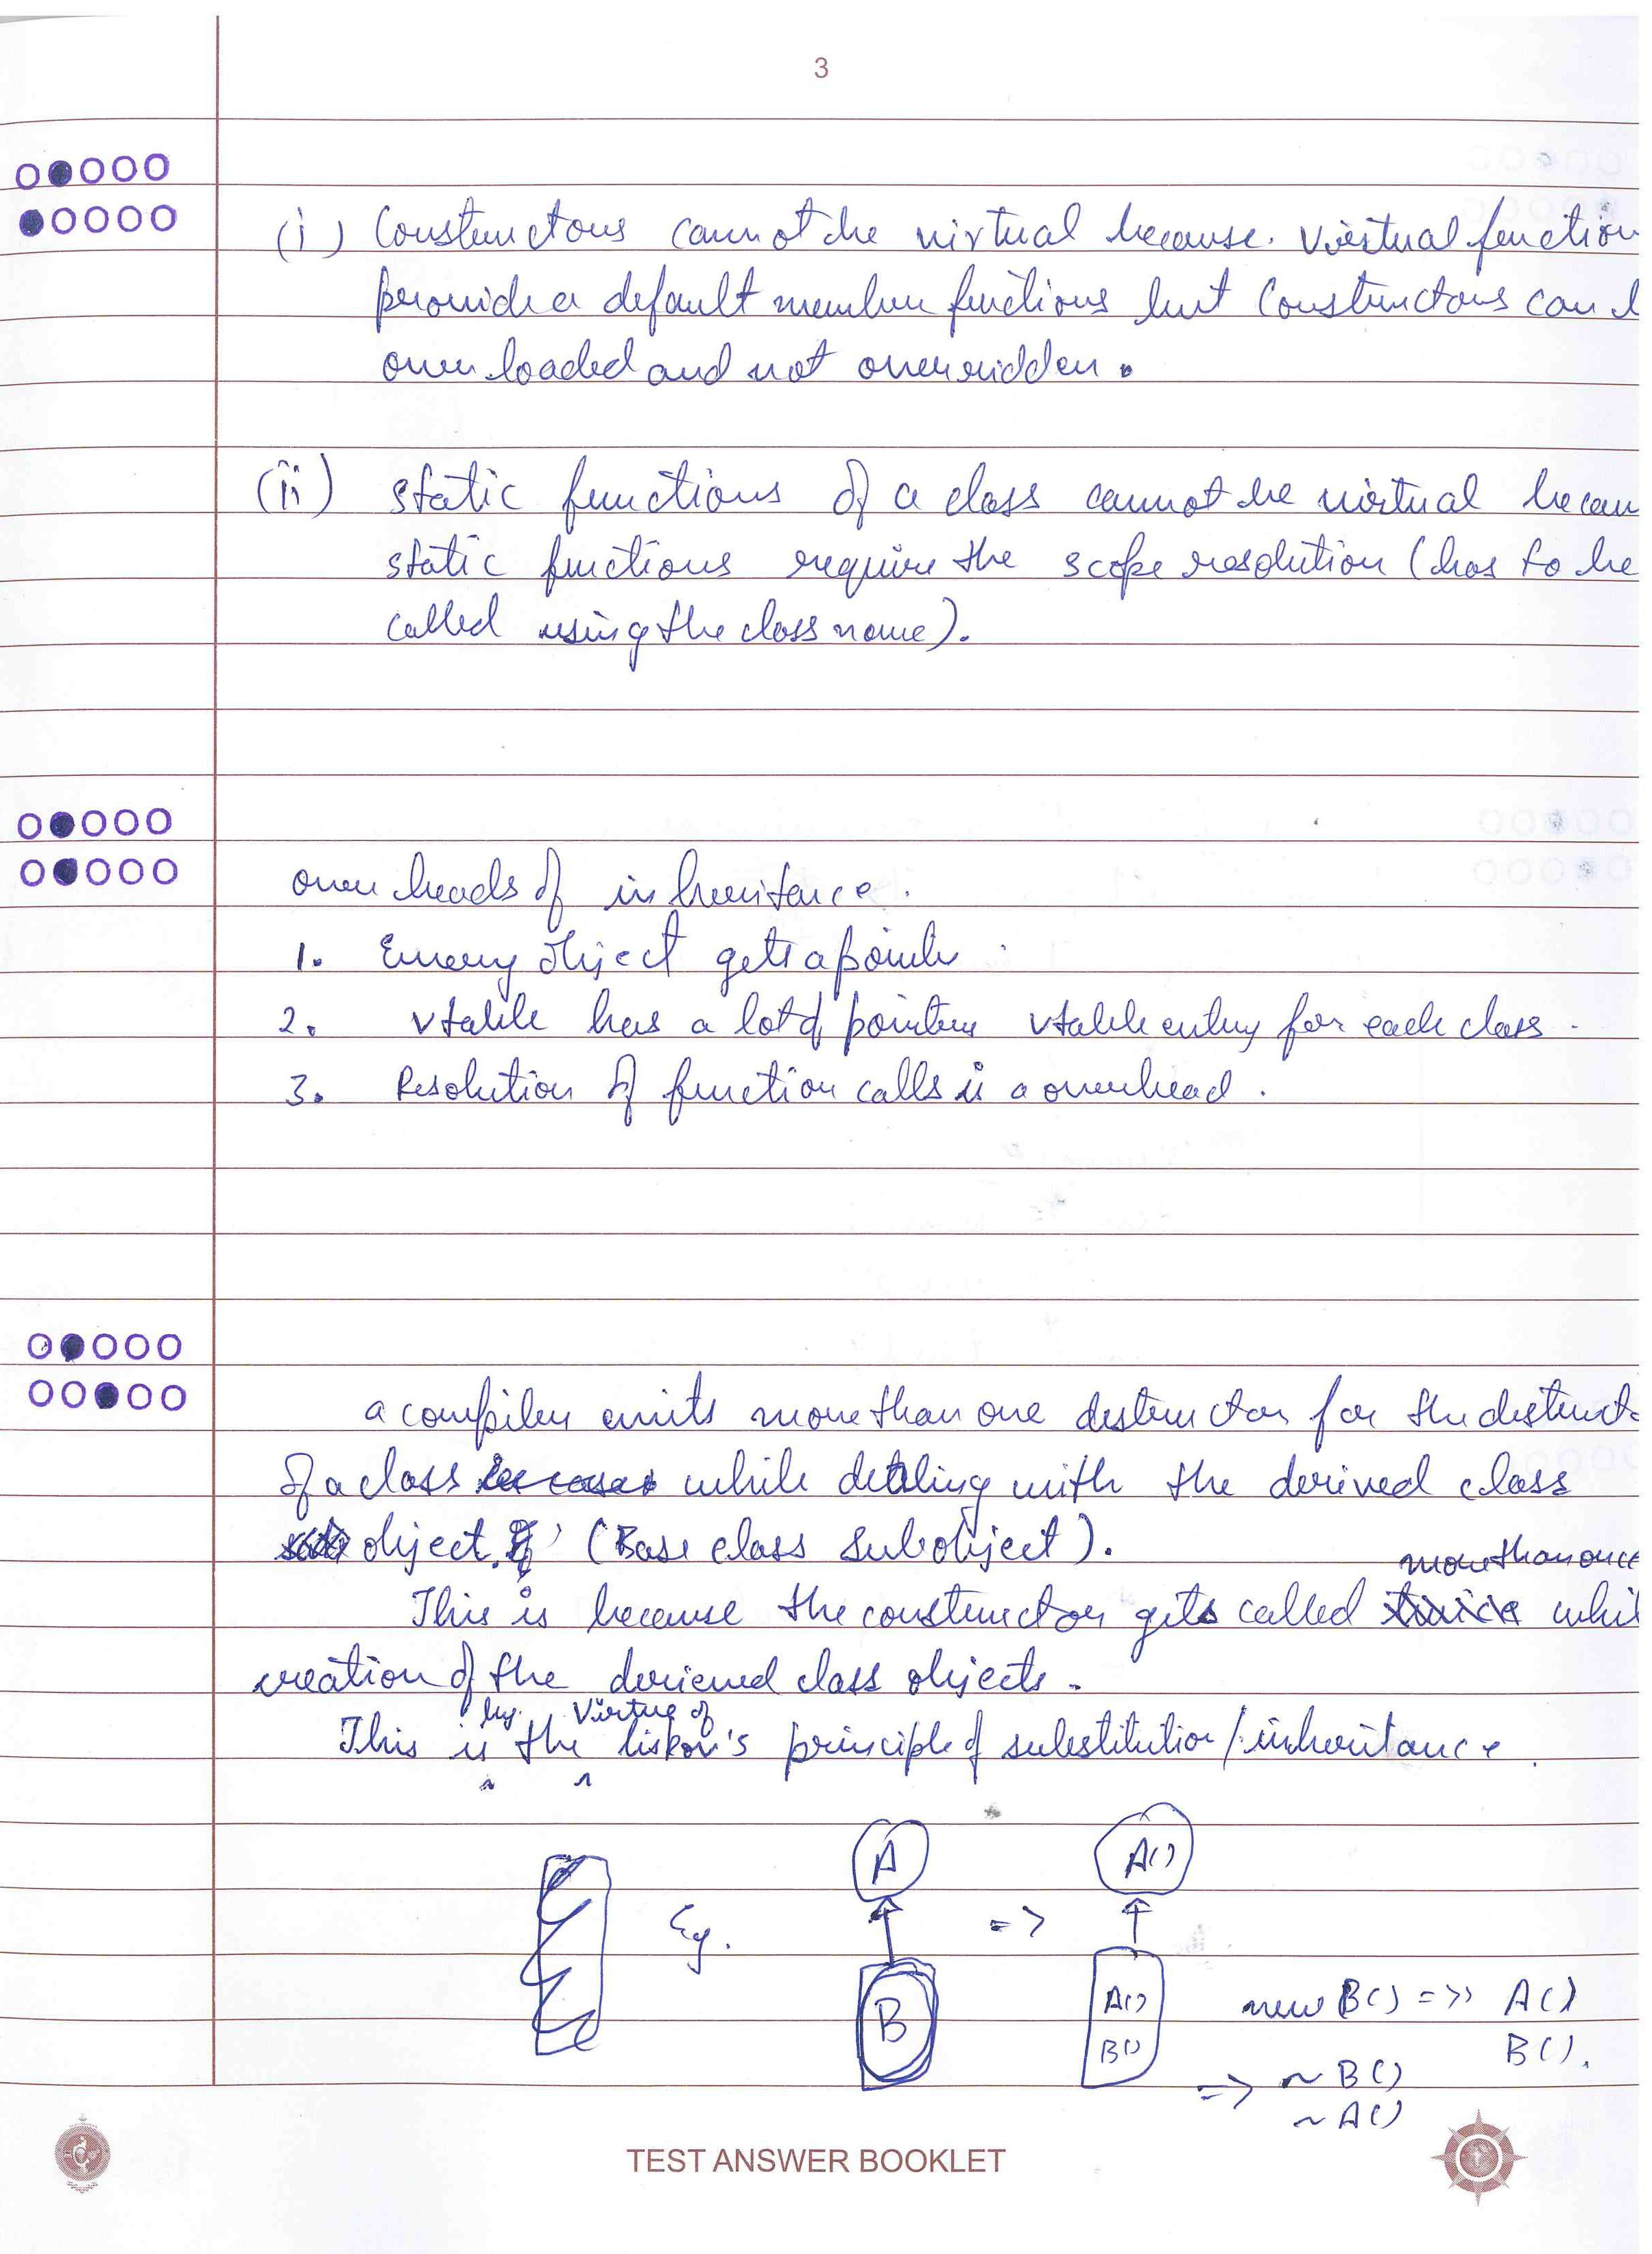 3
(i) Constructors cannot be virtual because. virtual function
provide a default member functions but Constructors can b
overloaded and not overridden.
(ii) static functions of a class cannot be virtual becau
static functions require the scope resolution (has to be
called using the class name).
overheads of inheritance.
1. Every object gets a pointer
2. vtable has a lot of pointers vtable entry for each class.
3. Resolution of function calls is a overhead.
a compiler emits more than one destructor for the destructo
of a class while dealing with the derived class
object. (Base class subobject).
more than once
This is because the constructor gets called whil
creation of the derieved class objects.
by virtue of
This is the liskov's principle of substitution/inheritance.
Eg. A => A()
B A() B()
new B() =>> A()
B().
=> ~B()
~A()
TEST ANSWER BOOKLET